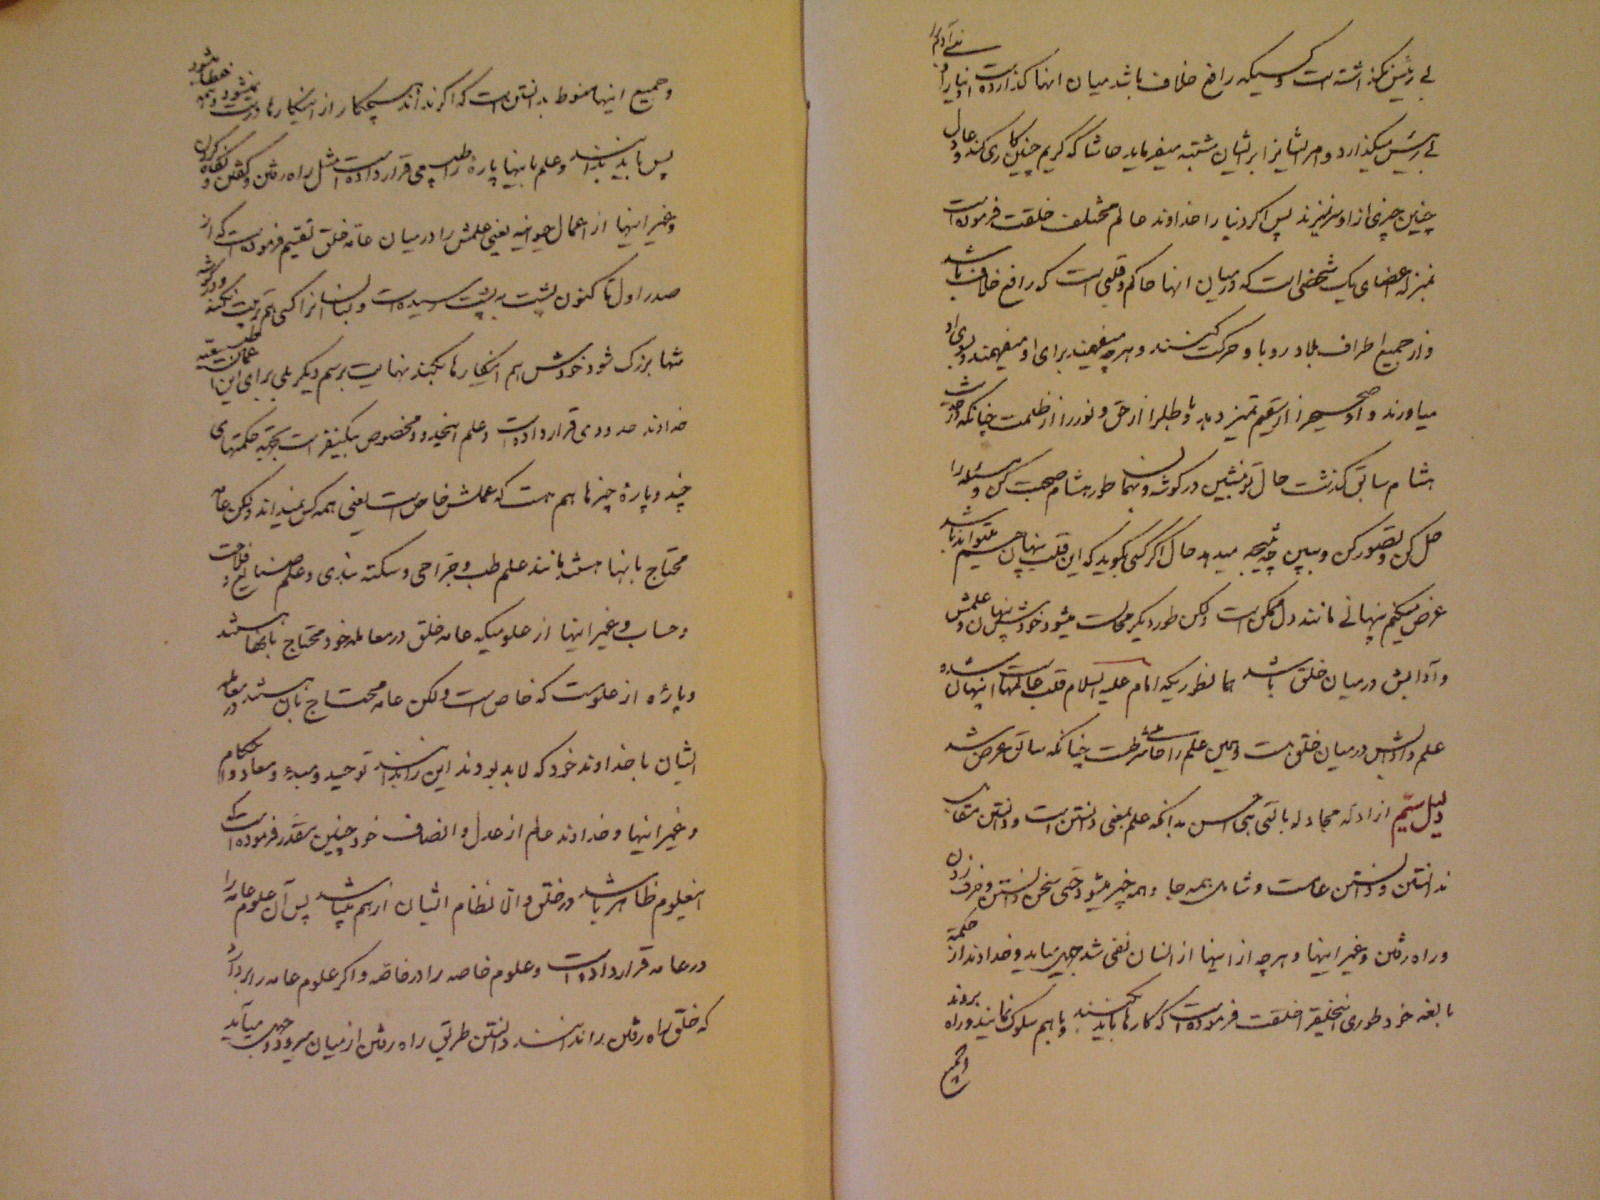 بی رئیس نگذاشته است و کسیکه رافع خلاف باشد میان انها گذارده است
بی رئیس میگذارد و امر ایشانرا بر ایشان مشتبه میفرماید حاشا که کریم چنین کاری کند و عادل
چنین چیزی از او سر نمیزند پس اگر دنیا را خداوند عالم مختلف خلقت فرموده است
بمنزله اعضای یک شخصی است که در میان انها حاکم و قلبی است که رافع خلاف باشد
و از جمیع اطراف بلاد رو باو حرکت کنند و هر چه میفهمند برای او میفهمند و بسوی او
میاورند و او صحیح را از سقیم تمیز دهد و باطلرا از حق و نور را از ظلمت چنانکه در حدیث
هشام سابق گذشت حال تو بنشین در گوشه و بهمان طور هشام صحبت کن و مسئله را
حل کن و تصور کن و ببین چه نتیجه میدهد حال اگر کسی بگوید که این قلب پنهان هم میتواند باشد
عرض میکنم پنهانی مانند دل ممکن است ولکن طور دیگر محال است میشود خودش پنهان و علمش
و آدابش در میان خلق باشد همانطوریکه امام علیه السلام قلب عالمست و پنهان شده
علم و ادابش در میان خلق هست و همین علم را حاملی ضرور است چنانکه سابق عرض شد
دلیل سیم از ادله مجادله بالتی هی احسن بدانکه علم بمعنی دانستن است و دانستن مقابل
ندانستن و دانستن عام است و شامل همه جا و همه چیز میشود حتی سخن دانستن و حرف زدن
و راه رفتن و غیر اینها و هر چه از اینها از انسان نفی شد جهل میاید و خداوند از حکمة
بالغه خود طوری این خلق را خلقت فرموده است که کارها باید بکنند و با هم سلوک نمایند و راه بروند
و جمیع
و جمیع اینها منوط بدانستن است که اگر ندانند هیچکار از اینکارها درست نمیشود
پس باید بدانند و علم باینها پارهٔ را طبیعی قرار داده است مثل راه رفتن و گفتن
و غیر اینها از اعمال حیوانیه یعنی علمش را در میان عامه خلق تقسیم فرموده است که از
صدر اول تا کنون پشت به پشت رسیده است و انسان را کسی هم تربیت نکند
تنها بزرگ شود خودش هم اینکارها بکند نهایت برسم دیگر بلی برای این
خداوند حدودی قرار داده است و علم انحدود مخصوص بیکنفر است بجهة حکمتهای
چند و پارهٔ چیزها هم هست که عملش خاص است یعنی همه کس نمیداند ولکن عامه
محتاج بانها هستند مانند علم طب و جراحی و شکسته بندی و علم صنایع و فلاحت
و حساب و غیر اینها از علومیکه عامه خلق در معامله خود محتاج بانها هستند
و پارهٔ از علومست که خاص است ولکن عامه محتاج بان هستند در معامله
ایشان با خداوند خود که لابد بودند این را بدانند توحید و مبدء و معاد و احکام
و غیر اینها و خداوند عالم از عدل و انصاف خود چنین مقدر فرموده است که
اینعلوم ظاهر باشد در خلق و الا نظام ایشان از هم میپاشد پس آن علوم عامه را
در عامه قرار داده است و علوم خاصه را در خاصه و اگر علوم عامه را بردارد
که خلق راه رفتن را ندانند دانستن طریق راه رفتن از میان میرود و جهل میآید